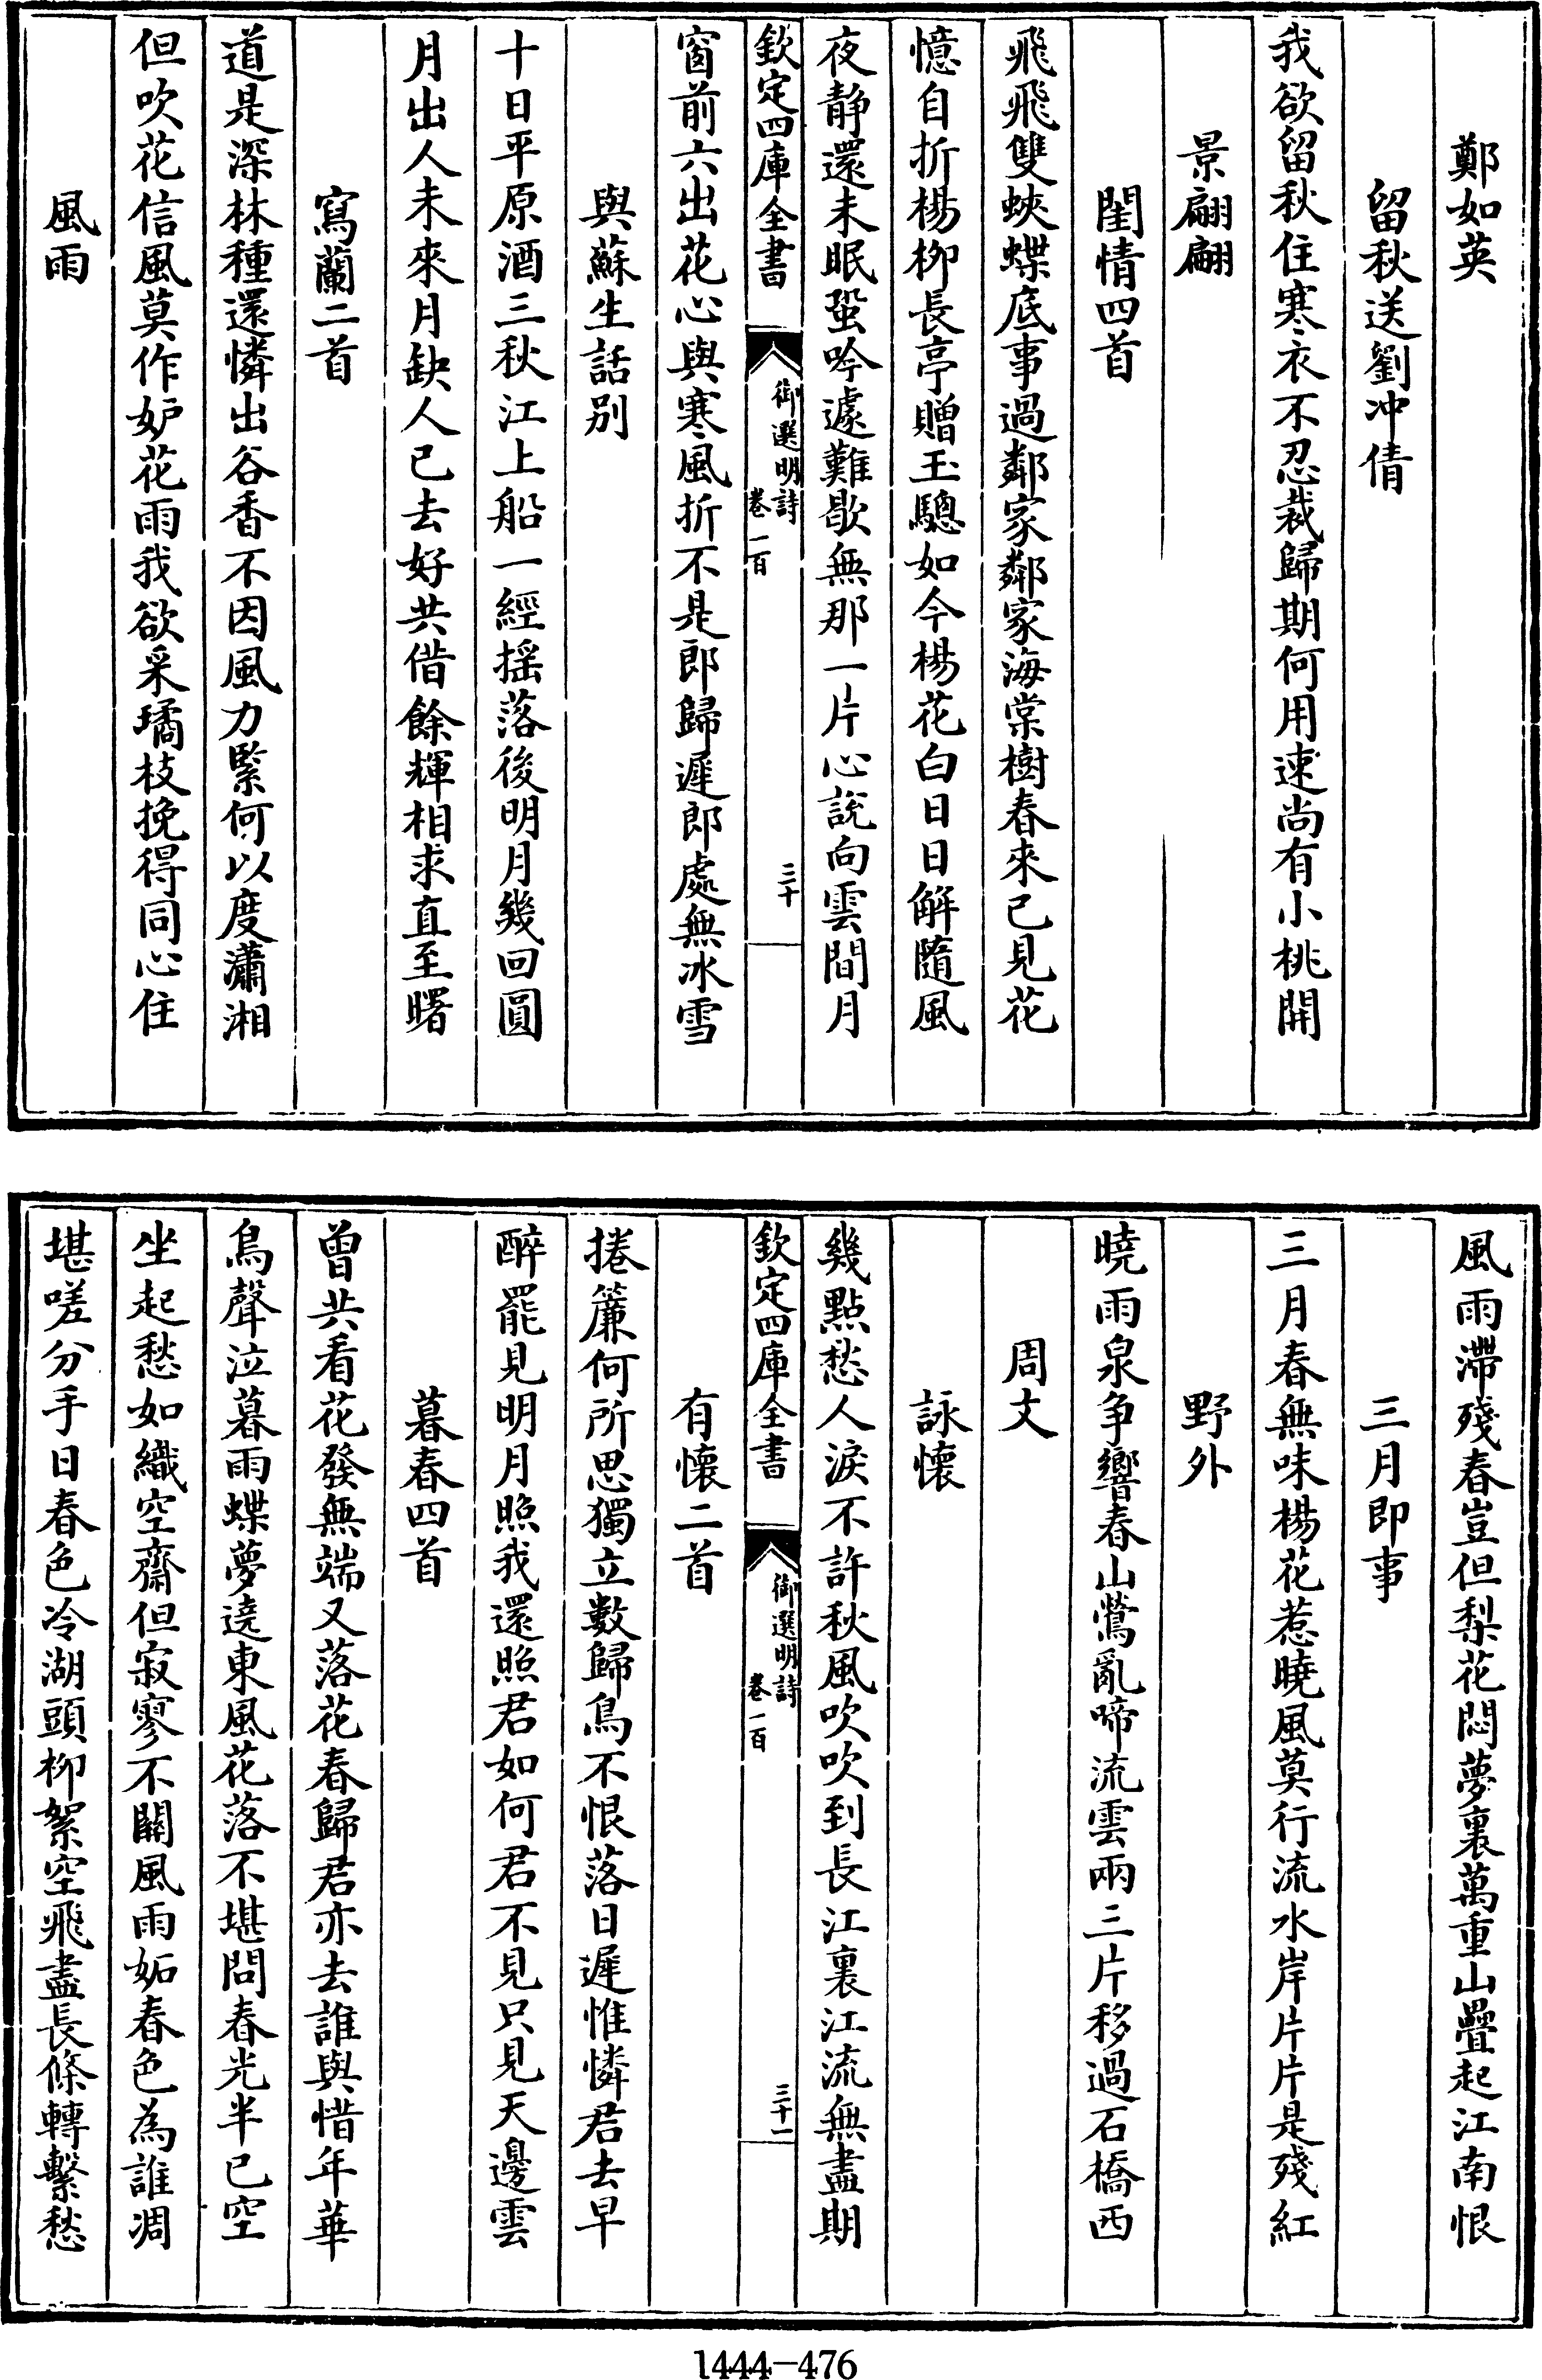 鄭如英
留秋送劉冲倩
我欲留秋住寒衣不忍裁歸期何用速尚有小桃開
景翩翩
閨情四首
飛飛雙蛺蝶底事過鄰家鄰家海棠樹春來已見花
憶自折楊柳長亭贈玉驄如今楊花白日日解隨風
夜靜還未眠蛩吟遽難歇無那一片心說向雲間月
欽定四庫全書
御選明詩
卷一百
三十
窗前六出花心與寒風折不是郎歸遲郎處無冰雪
與蘇生話别
十日平原酒三秋江上船一經揺落後明月幾回圓
月出人未來月缺人已去好共借餘輝相求直至曙
寫蘭二首
道是深林種還憐出谷香不因風力緊何以度瀟湘
但吹花信風莫作妒花雨我欲采璚枝挽得同心住
風雨
風雨滯殘春豈但梨花悶夢裏萬重山疊起江南恨
三月即事
三月春無味楊花惹曉風莫行流水岸片片是殘紅
野外
曉雨泉争響春山鶯亂啼流雲兩三片移過石橋西
周文
詠懷
幾點愁人淚不許秋風吹吹到長江裏江流無盡期
欽定四庫全書
御選明詩
卷一百
三十一
有懷二首
捲簾何所思獨立數歸鳥不恨落日遲惟憐君去早
醉罷見明月照我還照君如何君不見只見天邊雲
暮春四首
曾共看花發無端又落花春歸君亦去誰與惜年華
鳥聲泣暮雨蝶夢遶東風花落不堪問春光半已空
坐起愁如織空齋但寂寥不關風雨妬春色為誰凋
堪嗟分手日春色冷湖頭柳絮空飛盡長條轉繫愁
1444-476